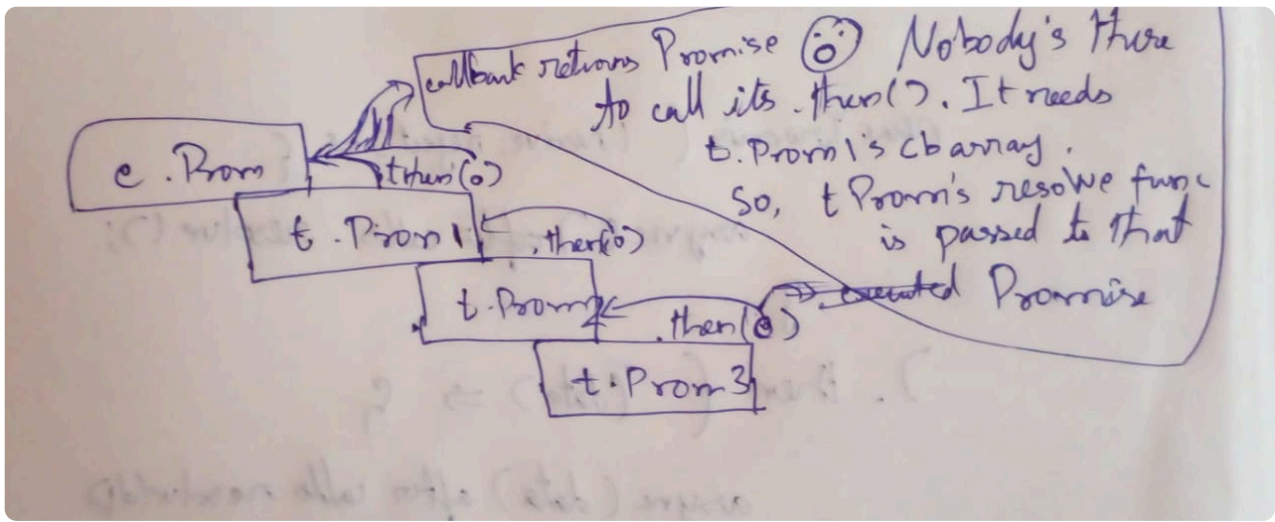 callback returns Promise Nobody's there
to call its .then(). It needs
t.Prom1's cb array.
So, t Prom's resolve func
is passed to that
executed Promise
e.Prom
.then(o)
t.Prom1
.then(o)
t.Prom2
.then(o)
t.Prom3